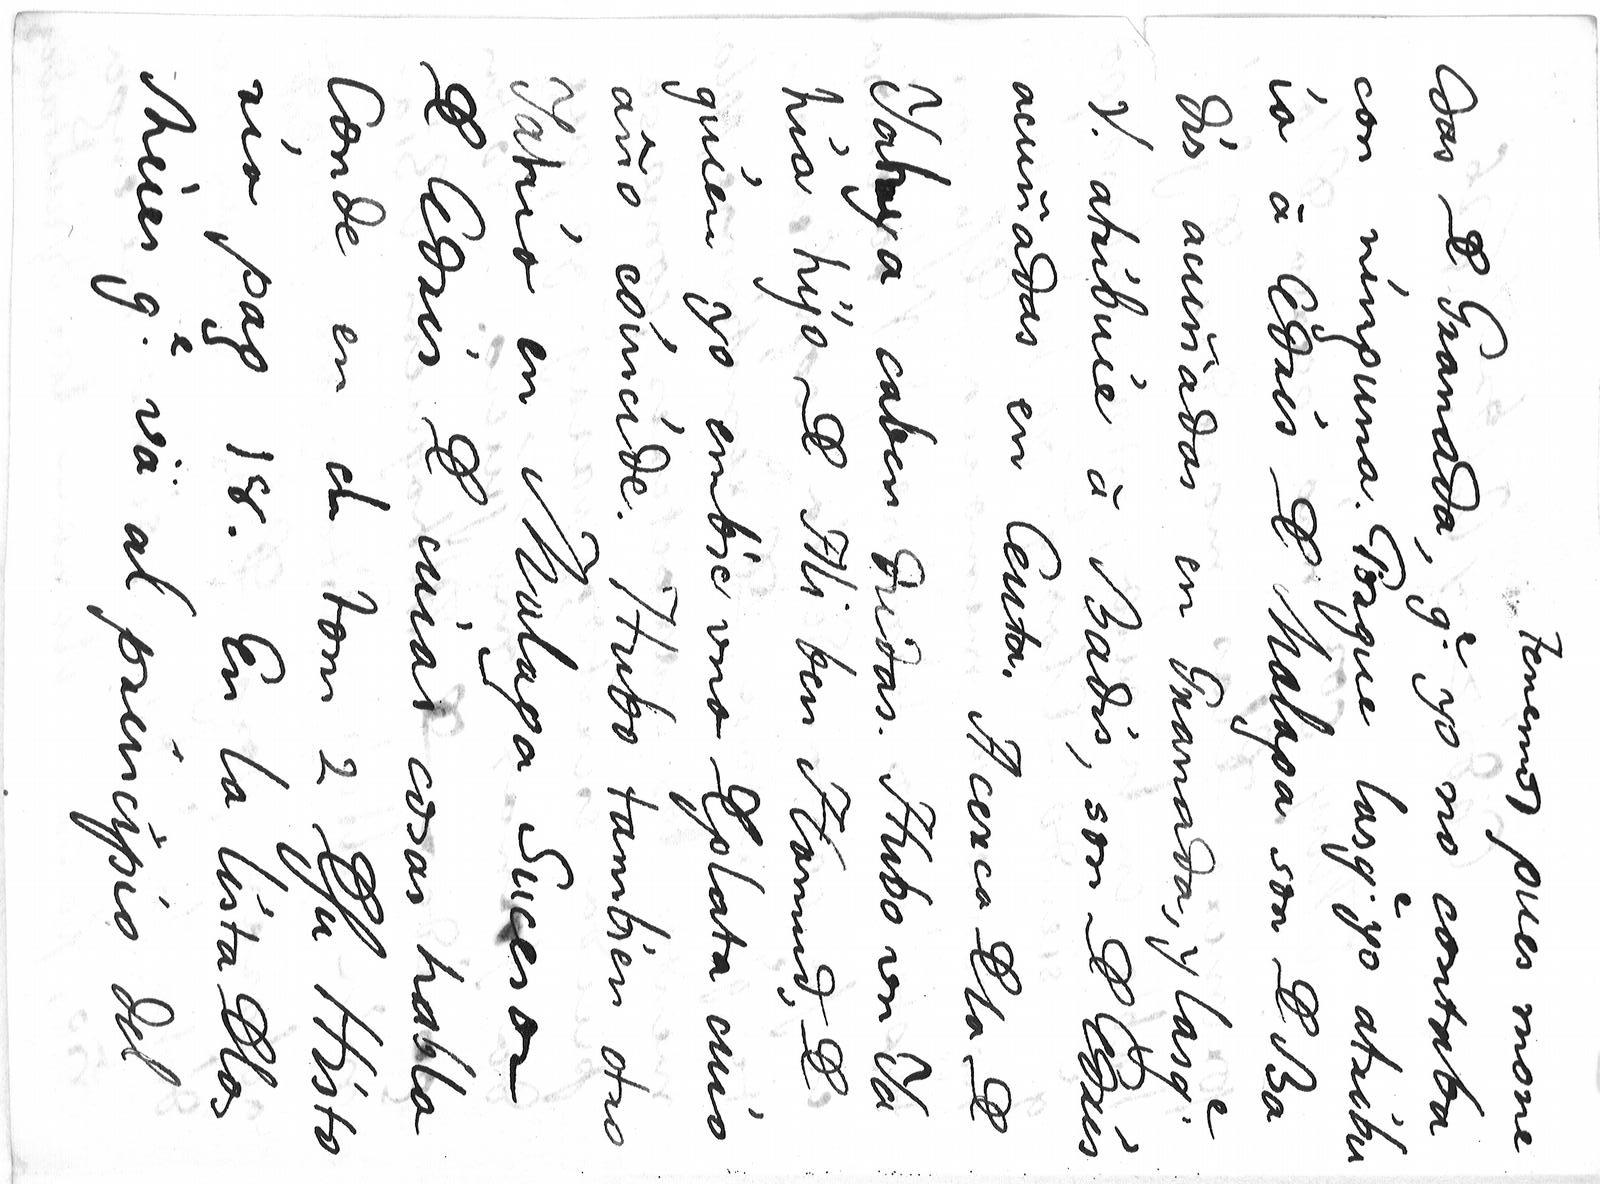 Tenemos pues mone
das de Granada, q.e yo no contaba
con ninguna. Porque las q.e yo atribu
ia à Edris de Malaga son de Ba
dis acuñadas en Granada, y las q.e
V. atribuie à Badis, son de Edris
acuñadas en Ceuta. Acerca de la de
Yahya caben dudas. Hubo un Ya
hia hijo de Ali ben Hamud, de
quien yo embie una de plata cuio
año coincide. Hubo tambien otro
Yahio en Malaga Sucesor
de Edris de cuias cosas habla
Conde en el tom 2 de su Histo
ria pag 18. En la lista de los
Reies q.e va al principio del